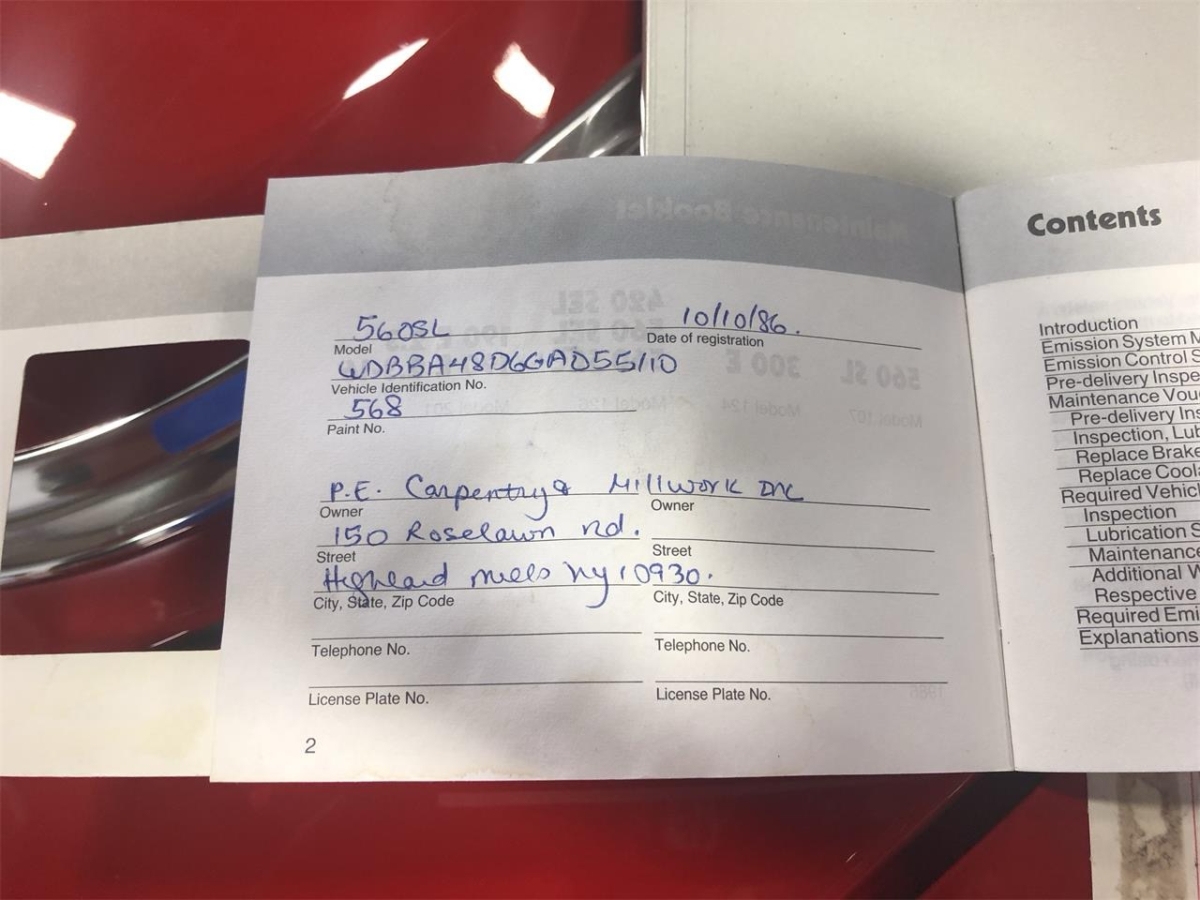 Contents
560SL
10/10/86.
Model
Date of registration
WDBBA48D6GA055110
Vehicle Identification No.
568
Paint No.
P.E. Carpentry & Millwork Inc
Owner
Owner
150 Roselawn Rd.
Street
Street
Highland Mills NY 10930.
City, State, Zip Code
City, State, Zip Code
Telephone No.
Telephone No.
License Plate No.
License Plate No.
2
Introduction
Emission System
Emission Control
Pre-delivery
Maintenance
Pre-delivery
Inspection,
Replace
Replace
Required
Inspection
Lubrication
Maintenance
Additional
Respective
Required
Explanations